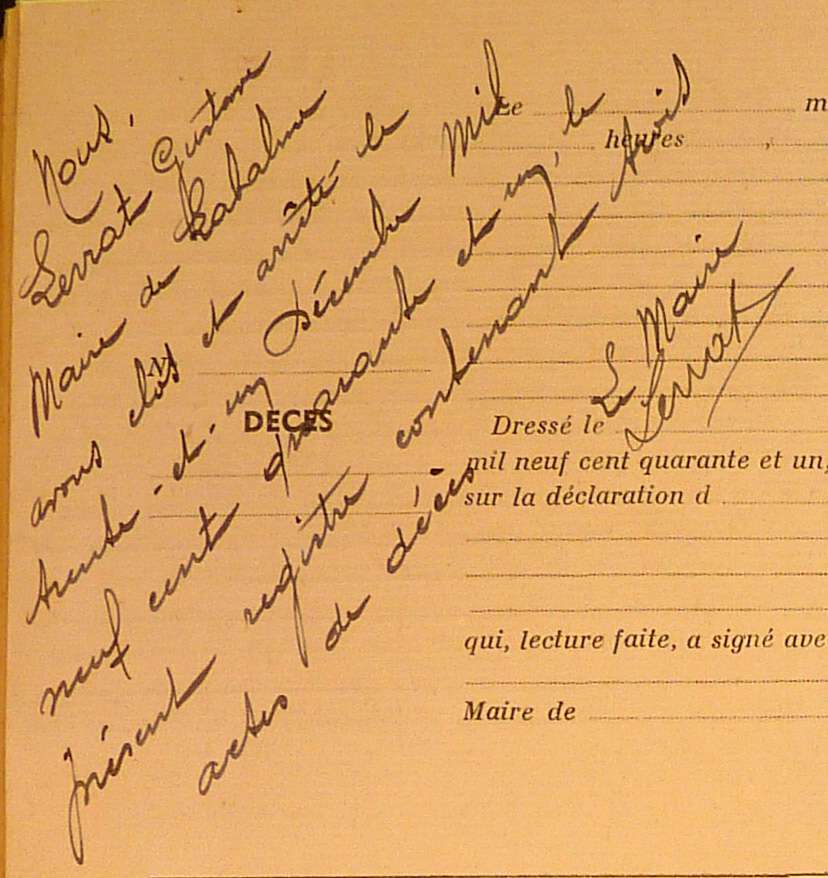 Nous,
Serrat Gustave
Maire de Labalme
avons clôs et arrêté le
trente-et-un Décembre mil
neuf cent quarante et un, le
présent registre contenant trois
actes de décès
Le Maire
Serrat
Le m
heures ,
DECES
Dressé le
mil neuf cent quarante et un,
sur la déclaration d
qui, lecture faite, a signé ave
Maire de